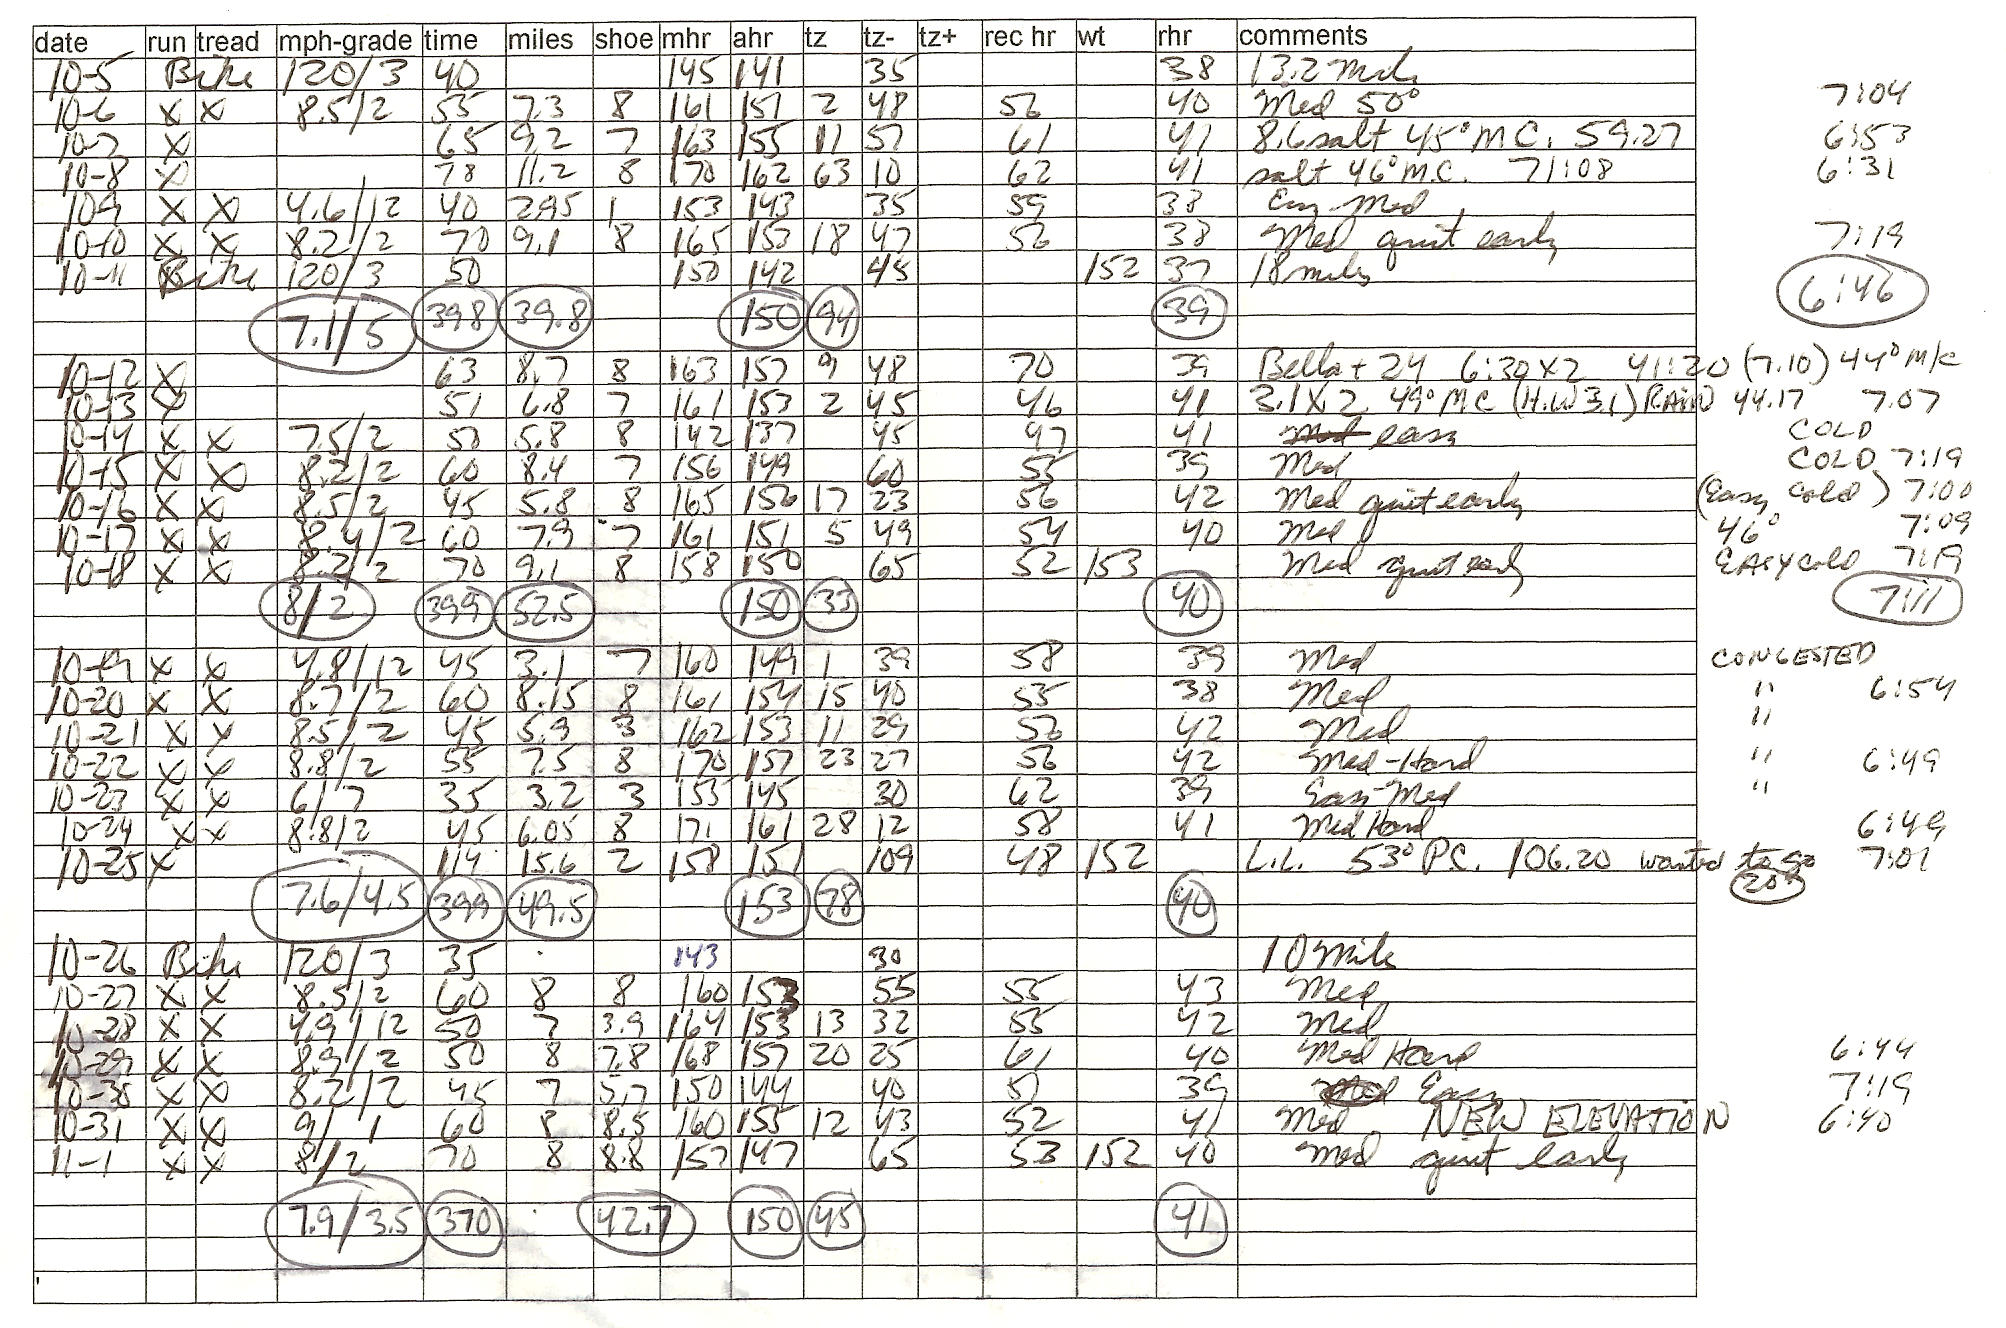 date run tread mph-grade time miles shoe mhr ahr tz tz- tz+ rec hr wt rhr comments
10-5 Bike 120/3 40 145 141 35 38 13.2 miles
10-6 X X 8.5/2 55 7.3 8 161 151 2 48 56 40 Med 50° 7:04
10-7 X 65 9.2 7 163 155 11 57 61 41 8.6 salt 45° M.C. 59.27 6:53
10-8 X 78 11.2 8 170 162 63 10 62 41 salt 46° M.C. 71:08 6:31
10-9 X X 4.6/12 40 2.95 1 153 143 35 59 38 Easy-Med
10-10 X X 8.2/2 70 9.1 8 165 153 18 47 56 38 Med quit early 7:19
10-11 Bike 120/3 50 150 142 45 152 37 18 miles
7.1/5 398 39.8 150 94 39 6:46
10-12 X 63 8.7 8 163 157 9 48 70 39 Bella + 24 6:30X2 41:20 (7.10) 44° M/C
10-13 X 51 6.8 7 161 153 2 45 46 41 3.1X2 49° MC (H.W 3.1) RAIN 44.17 7.07
10-14 X X 7.5/2 50 5.8 8 142 137 45 47 41 Med easy COLD
10-15 X X 8.2/2 60 8.4 7 156 149 60 55 39 Med COLD 7:19
10-16 X X 8.5/2 45 5.8 8 165 156 17 23 56 42 Med quit early (Easy Cold) 7:00
10-17 X X 8.4/2 60 7.9 7 161 151 5 49 54 40 Med 46° 7:09
10-18 X X 8.2/2 70 9.1 8 158 150 65 52 153 Med quit early EASY COLD 7:19
8/2 399 52.5 150 33 40 7:11
10-19 X X 4.8/12 45 3.1 7 160 149 1 39 58 39 Med CONGESTED
10-20 X X 8.7/2 60 8.15 8 161 154 15 40 55 38 Med " 6:54
10-21 X X 8.5/2 45 5.9 3 162 153 11 29 56 42 Med "
10-22 X X 8.8/2 55 7.5 8 170 157 23 27 56 42 Med-Hard " 6:49
10-23 X X 6/7 35 3.2 3 153 145 30 62 39 Easy-Med "
10-24 X X 8.8/2 45 6.05 8 171 161 28 12 58 41 Med Hard 6:49
10-25 X 114 15.6 2 158 151 109 48 152 L.L. 53° P.C. 106.20 wanted to go 7:01
20
7.6/4.5 399 49.5 153 78 40
10-26 Bike 120/3 35 143 30 10 Miles
10-27 X X 8.5/2 60 8 8 160 153 55 55 43 Med
10-28 X X 4.9/12 50 7 3.9 164 153 13 32 55 42 Med
10-29 X X 8.9/2 50 8 7.8 168 157 20 25 61 40 Med Hard 6:44
10-30 X X 8.2/2 45 7 5.7 150 144 40 51 39 Med Easy 7:19
10-31 X X 9/1 60 8 8.5 160 155 12 43 52 41 Med NEW ELEVATION 6:40
11-1 X X 8/2 70 8 8.8 157 147 65 53 152 40 Med quit early
7.9/3.5 370 42.7 150 45 41